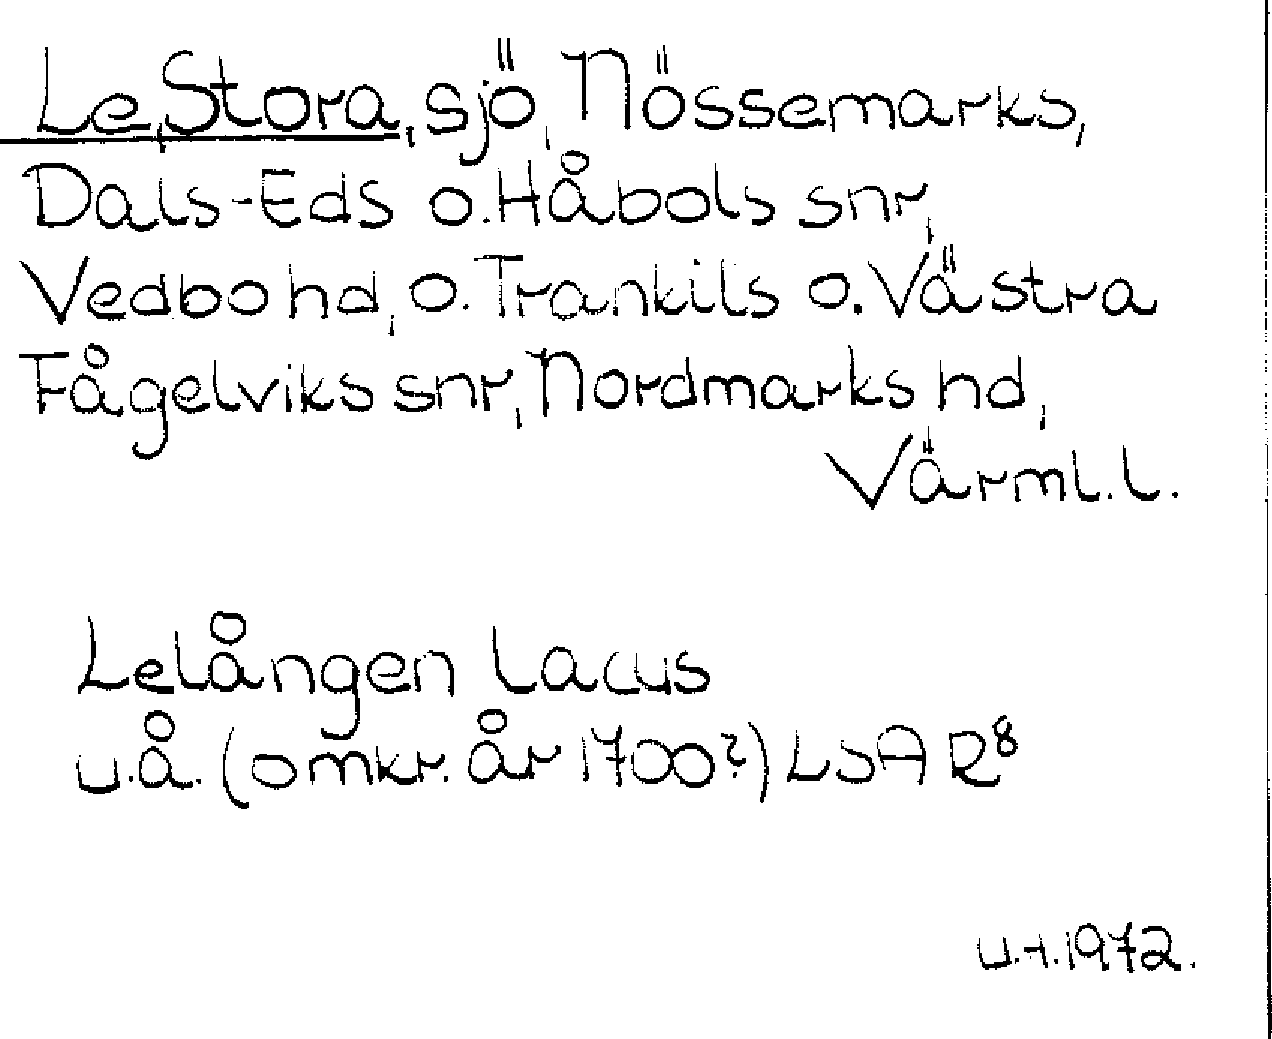 Le, Stora, sjö, Nössemarks,
Dals-Eds o. Håbols snr,
Vedbo hd, o. Trankils o. Västra
Fågelviks snr, Nordmarks hd,
Värml. l.
Lelången Lacus
u.å. (omkr. år 1700?) LSA R⁸
u.t. 1972.